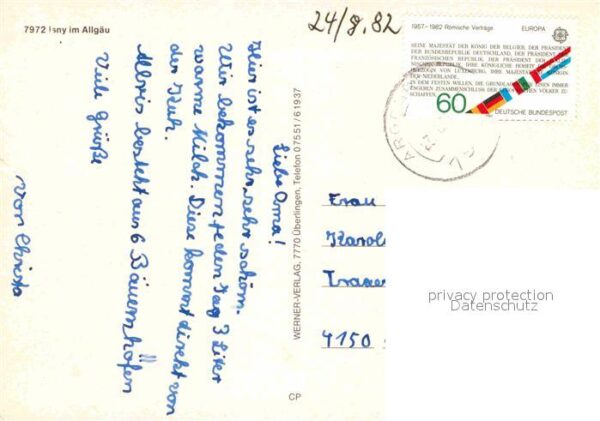 7972 Isny im Allgäu
24/8.82
Liebe Oma!
Hier ist es sehr, sehr schön.
Wir bekommen jeden Tag 3 Liter
warme Milch. Diese kommt direkt von
der Kuh.
besteht aus 6 Bäuernhöfen
Viele Grüße
von Christa
WERNER-VERLAG, 7770 Überlingen, Telefon 07551/61937
CP
1957-1982 Römische Verträge
EUROPA
SEINE MAJESTÄT DER KÖNIG DER BELGIER, DER PRÄSIDENT
DER BUNDESREPUBLIK DEUTSCHLAND, DER PRÄSIDENT
FRANZÖSISCHEN REPUBLIK, DER PRÄSIDENT
IHRE KÖNIGLICHE HOHEIT
HERZOGIN VON LUXEMBURG, IHRE MAJESTÄT
DER NIEDERLANDE,
IN DEM FESTEN WILLEN, DIE GRUNDLAGEN IMMER
ENGEREN ZUSAMMENSCHLUSS DER VÖLKER ZU
SCHAFFEN
60
DEUTSCHE BUNDESPOST
Frau
Karol
4150
privacy protection
Datenschutz